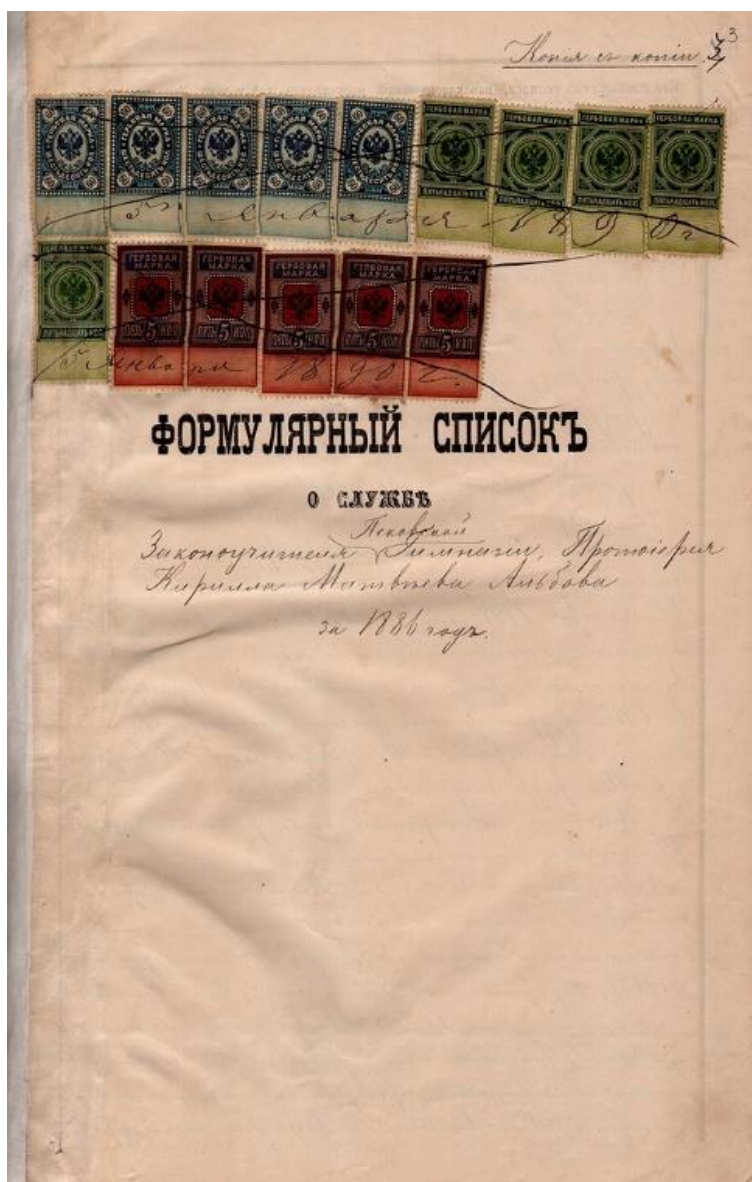 3
Копія съ копіи
ГЕРБОВАЯ МАРКА ГЕРБОВАЯ МАРКА ГЕРБОВАЯ МАРКА ГЕРБОВАЯ МАРКА
60 60 60 60 60 60 60 60 60 60
ПЯТЬНАДЦАТЬ КОП. ПЯТЬНАДЦАТЬ КОП. ПЯТЬНАДЦАТЬ КОП. ПЯТЬНАДЦАТЬ КОП.
5 Января 1890 г
ГЕРБОВАЯ МАРКА ГЕРБОВАЯ МАРКА ГЕРБОВАЯ МАРКА ГЕРБОВАЯ МАРКА ГЕРБОВАЯ МАРКА ГЕРБОВАЯ МАРКА
ПЯТЬНАДЦАТЬ КОП. ПЯТЬ 5 КОП. ПЯТЬ 5 КОП. ПЯТЬ 5 КОП. ПЯТЬ 5 КОП. ПЯТЬ 5 КОП.
5 Января 1890 г.
ФОРМУЛЯРНЫЙ СПИСОКЪ
О СЛУЖБѢ
Псковской
Законоучителя Гимназіи, Протоіерея
Кирилла Матвѣева Альбова
за 1886 годъ.